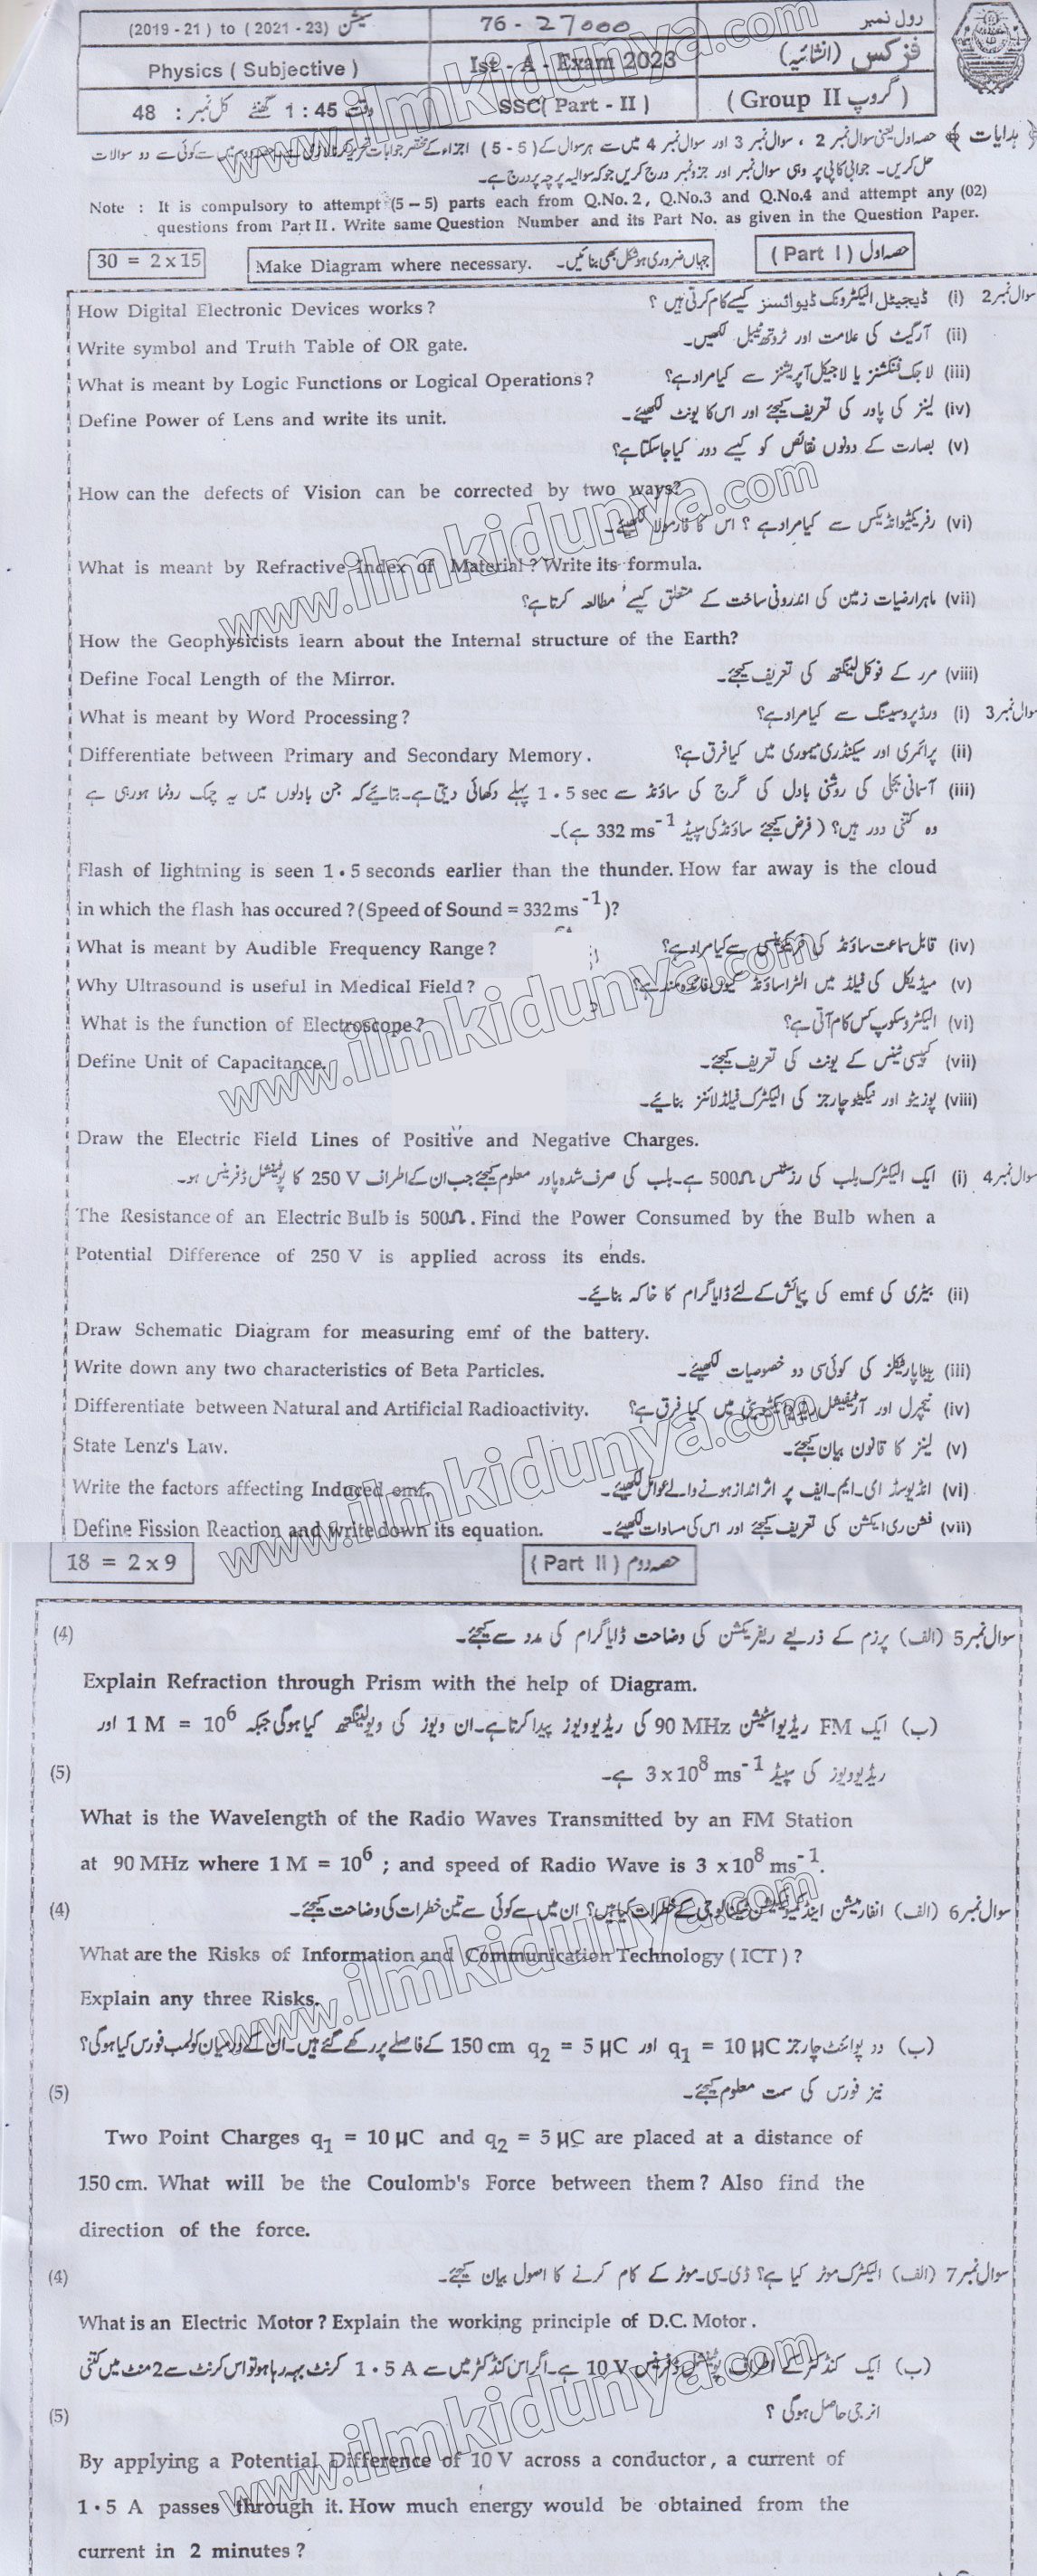 رول نمبر 76 - 27000 سیشن (2019 - 21) to (2021 - 23)
فزکس (انشائیہ) Ist - A - Exam 2023 Physics ( Subjective )
(گروپ Group II) SSC( Part - II ) وقت 1 : 45 گھنٹے کل نمبر : 48
﴿ ہدایات ﴾ حصہ اول یعنی سوال نمبر 2 ، سوال نمبر 3 اور سوال نمبر 4 میں سے ہر سوال کے (5 - 5) اجزاء کے مختصر جوابات تحریر کرنا لازمی ہے۔ حصہ دوم میں سے کوئی سے دو سوالات
حل کریں۔ جوابی کاپی پر وہی سوال نمبر اور جزو نمبر درج کریں جو کہ سوالیہ پرچہ پر درج ہے۔
Note : It is compulsory to attempt (5 – 5) parts each from Q.No. 2, Q.No.3 and Q.No.4 and attempt any (02)
questions from Part II. Write same Question Number and its Part No. as given in the Question Paper.
30 = 2 x 15 Make Diagram where necessary. جہاں ضروری ہو شکل بھی بنائیں۔ حصہ اول ( Part I )
How Digital Electronic Devices works ? سوال نمبر 2 (i) ڈیجیٹل الیکٹرونک ڈیوائسز کیسے کام کرتی ہیں ؟
Write symbol and Truth Table of OR gate. (ii) آر گیٹ کی علامت اور ٹروتھ ٹیبل لکھیں۔
What is meant by Logic Functions or Logical Operations ? (iii) لاجک فنکشنز یا لاجیکل آپریشنز سے کیا مراد ہے؟
Define Power of Lens and write its unit. (iv) لینز کی پاور کی تعریف کیجئے اور اس کا یونٹ لکھیئے۔
(v) بصارت کے دونوں نقائص کو کیسے دور کیا جا سکتا ہے؟
How can the defects of Vision can be corrected by two ways?
(vi) رفریکٹو انڈیکس سے کیا مراد ہے ؟ اس کا فارمولا لکھیئے۔
What is meant by Refractive Index of Material ? Write its formula.
(vii) ماہر ارضیات زمین کی اندرونی ساخت کے متعلق کیسے مطالعہ کرتا ہے؟
How the Geophysicists learn about the Internal structure of the Earth?
Define Focal Length of the Mirror. (viii) مرر کے فوکل لینگتھ کی تعریف کیجئے۔
What is meant by Word Processing ? سوال نمبر 3 (i) ورڈ پروسیسنگ سے کیا مراد ہے؟
Differentiate between Primary and Secondary Memory . (ii) پرائمری اور سیکنڈری میموری میں کیا فرق ہے؟
(iii) آسمانی بجلی کی روشنی بادل کی گرج کی ساؤنڈ سے 1 • 5 sec پہلے دکھائی دیتی ہے۔ بتائیے کہ جن بادلوں میں یہ چمک رونما ہو رہی ہے
وہ کتنی دور ہیں؟ ( فرض کیجئے ساؤنڈ کی سپیڈ 332 ms⁻¹ ہے)۔
Flash of lightning is seen 1 • 5 seconds earlier than the thunder. How far away is the cloud
in which the flash has occured ? (Speed of Sound = 332 ms⁻¹)?
What is meant by Audible Frequency Range ? (iv) قابل سماعت ساؤنڈ کی فریکوئنسی سے کیا مراد ہے؟
Why Ultrasound is useful in Medical Field ? (v) میڈیکل کی فیلڈ میں الٹراساؤنڈ کیوں فائدہ مند ہے؟
What is the function of Electroscope ? (vi) الیکٹروسکوپ کس کام آتی ہے؟
Define Unit of Capacitance. (vii) کپیسی ٹینس کے یونٹ کی تعریف کیجئے۔
(viii) پوزیٹو اور نیگیٹو چارجز کی الیکٹرک فیلڈ لائنز بنائیے۔
Draw the Electric Field Lines of Positive and Negative Charges.
سوال نمبر 4 (i) ایک الیکٹرک بلب کی رزسٹنس 500Ω ہے۔ بلب کی صرف شدہ پاور معلوم کیجئے جب ان کے اطراف 250 V کا پوٹینشل ڈفرینس ہو۔
The Resistance of an Electric Bulb is 500Ω . Find the Power Consumed by the Bulb when a
Potential Difference of 250 V is applied across its ends.
(ii) بیٹری کی emf کی پیمائش کے لئے ڈایا گرام کا خاکہ بنائیے۔
Draw Schematic Diagram for measuring emf of the battery.
Write down any two characteristics of Beta Particles. (iii) بیٹا پارٹیکلز کی کوئی سی دو خصوصیات لکھیئے۔
Differentiate between Natural and Artificial Radioactivity. (iv) نیچرل اور آرٹیفیشل ریڈیو ایکٹیویٹی میں کیا فرق ہے؟
State Lenz's Law. (v) لینز کا قانون بیان کیجئے۔
Write the factors affecting Induced emf. (vi) انڈیوسڈ ای۔ایم۔ایف پر اثر انداز ہونے والے عوامل لکھیئے۔
Define Fission Reaction and write down its equation. (vii) فشن ری ایکشن کی تعریف کیجئے اور اس کی مساوات لکھیئے۔
18 = 2 x 9 حصہ دوم ( Part II )
سوال نمبر 5 (الف) پرزم کے ذریعے ریفریکشن کی وضاحت ڈایا گرام کی مدد سے کیجئے۔ (4)
Explain Refraction through Prism with the help of Diagram.
(ب) ایک FM ریڈیو اسٹیشن 90 MHz کی ریڈیو ویوز پیدا کرتا ہے۔ ان ویوز کی ویو لینگتھ کیا ہوگی جبکہ 1 M = 10⁶ اور
ریڈیو ویوز کی سپیڈ 3 x 10⁸ ms⁻¹ ہے۔ (5)
What is the Wavelength of the Radio Waves Transmitted by an FM Station
at 90 MHz where 1 M = 10⁶ ; and speed of Radio Wave is 3 x 10⁸ ms⁻¹.
سوال نمبر 6 (الف) انفارمیشن اینڈ کمیونیکیشن ٹیکنالوجی کے خطرات کیا ہیں؟ ان میں سے کوئی سے تین خطرات کی وضاحت کیجئے۔ (4)
What are the Risks of Information and Communication Technology ( ICT ) ?
Explain any three Risks.
(ب) دو پوائنٹ چارجز q₁ = 10 μC اور q₂ = 5 μC 150 cm کے فاصلے پر رکھے گئے ہیں۔ ان کے درمیان کولمب فورس کیا ہوگی؟
نیز فورس کی سمت معلوم کیجئے۔ (5)
Two Point Charges q₁ = 10 μC and q₂ = 5 μC are placed at a distance of
150 cm. What will be the Coulomb's Force between them ? Also find the
direction of the force.
سوال نمبر 7 (الف) الیکٹرک موٹر کیا ہے؟ ڈی۔سی۔موٹر کے کام کرنے کا اصول بیان کیجئے۔ (4)
What is an Electric Motor ? Explain the working principle of D.C. Motor .
(ب) ایک کنڈکٹر کے اطراف پوٹینشل ڈفرینس 10 V ہے۔ اگر اس کنڈکٹر میں سے 1 • 5 A کرنٹ بہہ رہا ہو تو اس کرنٹ سے 2 منٹ میں کتنی
انرجی حاصل ہوگی ؟ (5)
By applying a Potential Difference of 10 V across a conductor , a current of
1 • 5 A passes through it. How much energy would be obtained from the
current in 2 minutes ?
www.ilmkidunya.com
www.ilmkidunya.com
www.ilmkidunya.com
www.ilmkidunya.com
www.ilmkidunya.com
www.ilmkidunya.com